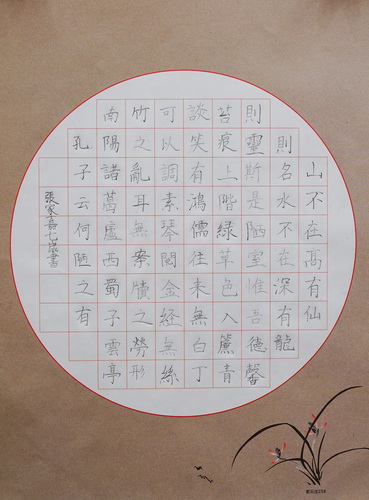 山不在高有仙
則名水不在深有龍
則靈斯是陋室惟吾德馨
苔痕上階綠草色入簾青
談笑有鴻儒往来無白丁
可以調素琴閱金経無絲
竹之亂耳無案牘之勞形
南陽諸葛廬西蜀子雲亭
孔子云何陋之有
張家嘉七歲書